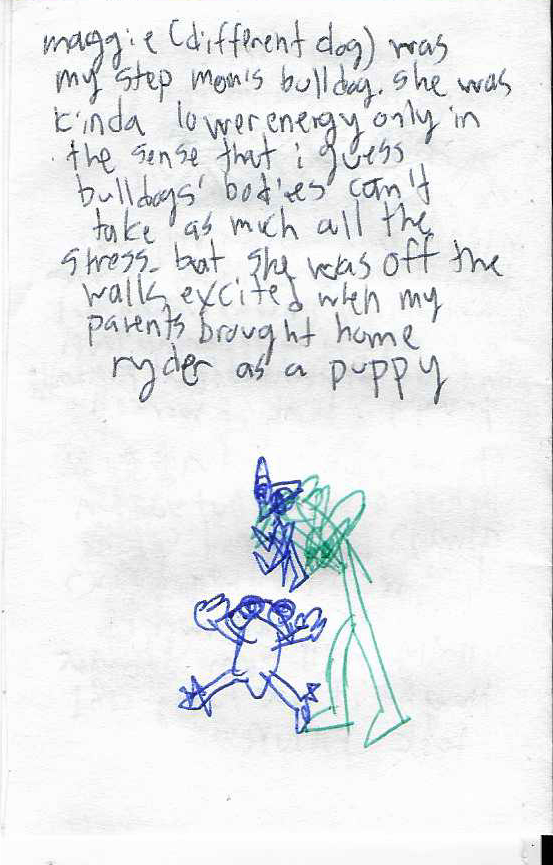 maggie (different dog) was
my step mom's bulldog. she was
kinda lower energy only in
the sense that i guess
bulldogs' bodies can't
take as much all the
stress. but she was off the
walls excited when my
parents brought home
ryder as a puppy